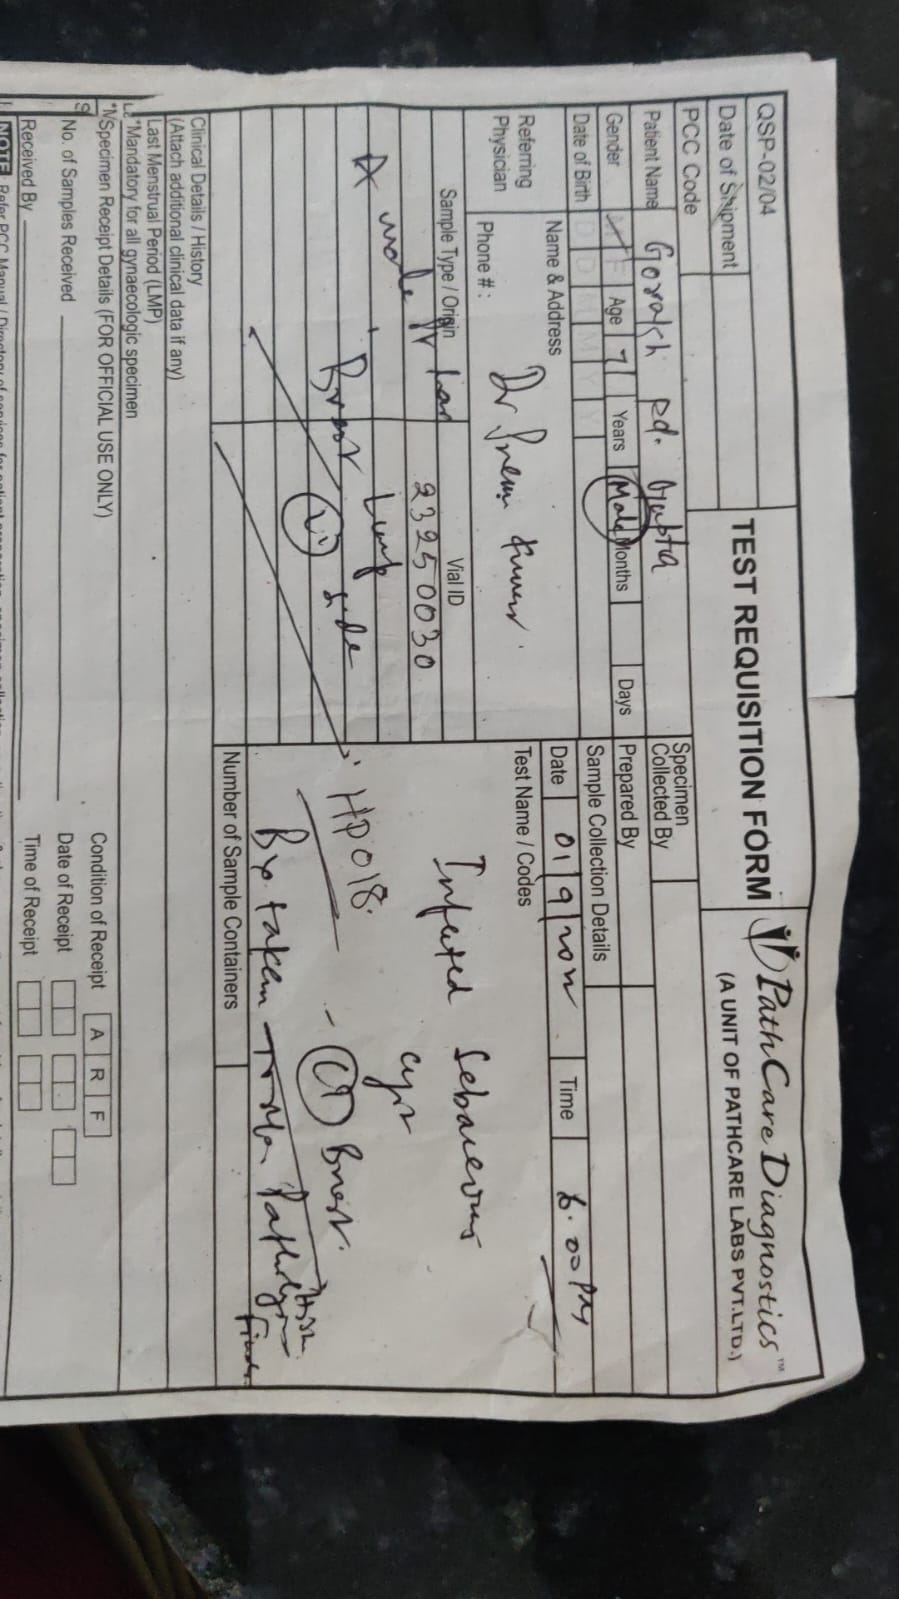 QSP-02/04
TEST REQUISITION FORM
PathCare Diagnostics™
(A UNIT OF PATHCARE LABS PVT.LTD.)
Date of Shipment
PCC Code
Specimen
Collected By
Patient Name Gorakh pd. Gupta
Prepared By
Gender M F Age 7 Years Male Months Days
Sample Collection Details
Date of Birth D D M M Y Y
Date 01/9/ Time 6.00 PM
Referring
Physician
Name & Address Dr Prem Kumar
Phone # :
Test Name / Codes
Infected Sebaceous
cyst
Sample Type / Origin
Vial ID
23250030
A male
Breast Lump
(L) side
HP018.
Breast.
Bx taken
Number of Sample Containers
Clinical Details / History
(Attach additional clinical data if any)
Last Menstrual Period (LMP)
*Mandatory for all gynaecologic specimen
Specimen Receipt Details (FOR OFFICIAL USE ONLY)
No. of Samples Received
Condition of Receipt A R F
Date of Receipt
Received By
Time of Receipt
NOTE